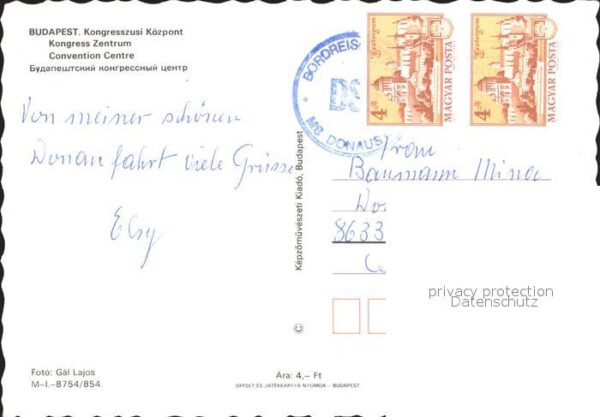 BUDAPEST. Kongresszusi Központ
Kongress Zentrum
Convention Centre
Будапештский конгрессный центр
Von meiner schönen
Donaufahrt viele Grüsse
Elsy
Képzőművészeti Kiadó, Budapest
BORDREIS
DS
MS DONAUS
Esztergom
4 Ft
MAGYAR POSTA
Esztergom
4 Ft
MAGYAR POSTA
Baumann Mina
8633
privacy protection
Datenschutz
Fotó: Gál Lajos
M–I.–8754/854
Ára: 4,– Ft
OFFSET ÉS JÁTÉKKÁRTYA NYOMDA – BUDAPEST